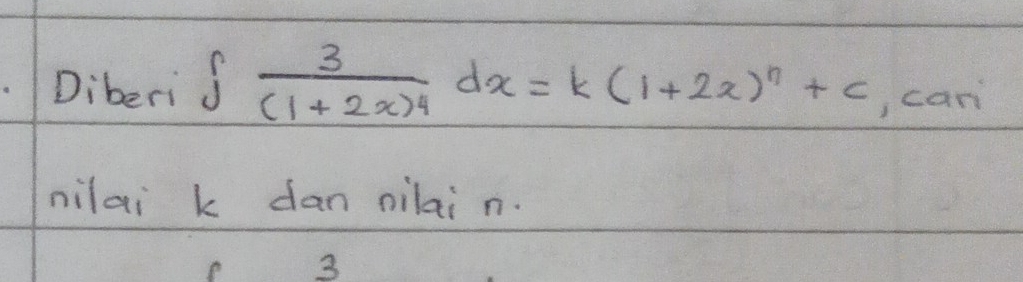 . Diberi ∫ 3/(1+2x)4 dx = k(1+2x)ⁿ + c, cari
nilai k dan nilai n.
∫ 3